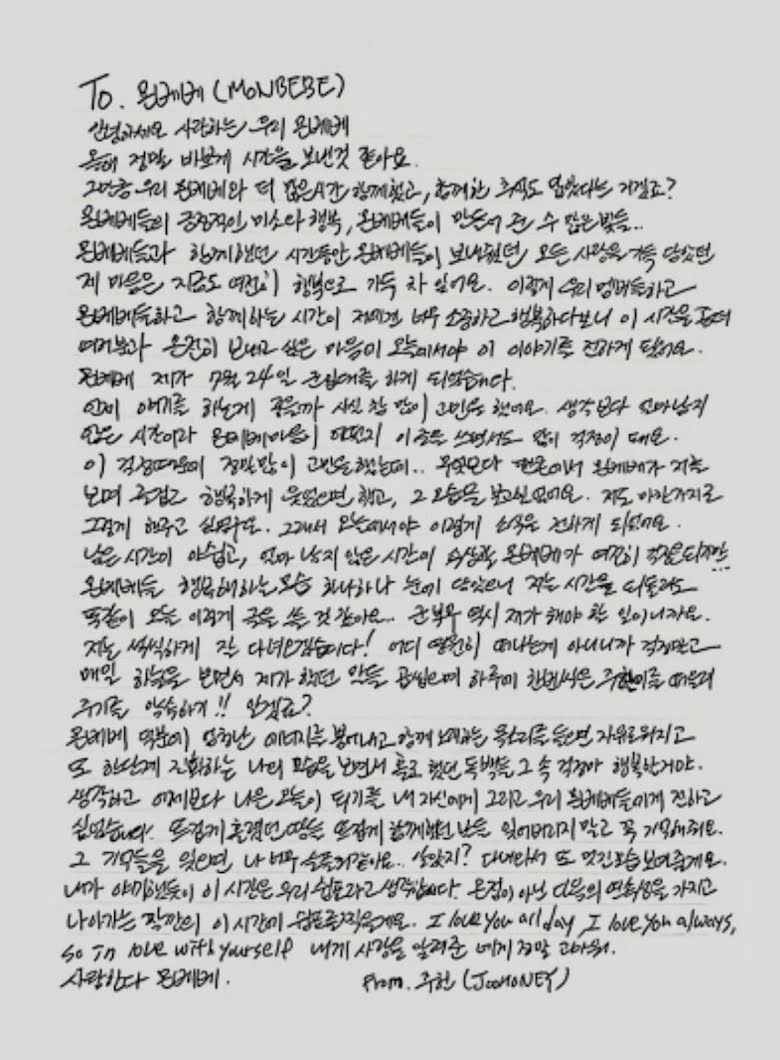 To. 몬베베 (MONBEBE)
안녕하세요 사랑하는 우리 몬베베
올해 정말 바쁘게 시간을 보낸것 같아요.
그만큼 우리 몬베베와 더 많은시간 함께했고, 함께한 추억도 많았다는 거겠죠?
몬베베들의 긍정적인 미소와 행복, 몬베베들이 만들어 준 수 많은 빛들..
몬베베들과 함께했던 시간동안 몬베베들이 보내줬던 모든 사랑을 가득 담았던
제 마음은 지금도 여전히 행복으로 가득 차 있어요. 이렇게 우리 멤버들하고
몬베베들하고 함께하는 시간이 저에겐 너무 소중하고 행복하다보니 이 시간을
여러분과 온전히 보내고 싶은 마음에 오늘에서야 이 이야기를 전하게 됐어요.
몬베베 제가 7월 24일 군입대를 하게 되었습니다.
언제 얘기를 하는게 좋을까 사실 참 많이 고민을 했어요. 생각보다 얼마남지
않은 시간이라 몬베베마음이 어떤지 이 글을 쓰면서도 많이 걱정이 돼요.
이 걱정때문에 정말많이 고민을했는데.. 무엇보다 몬베베가 저를
보며 즐겁고 행복하게 웃었으면 했고, 그 모습을 보고싶었어요. 저도 마찬가지로
그렇게 해주고 싶었구요. 그래서 오늘에서야 이렇게 소식을 전하게 되었어요.
남은 시간이 아쉽고, 얼마 남지 않은 시간이 속상할 몬베베가 여전히 걱정되지만...
몬베베들 행복해하는모습 하나하나 눈에 담았으니 저는 시간을 되돌려도
똑같이 오늘 이렇게 글을 쓸 것 같아요.. 군복무 역시 제가 해야 할 일이니까요.
저는 씩씩하게 잘 다녀오겠습니다! 어디 영원히 떠나는게 아니니까 걱정말고
매일 하늘을 보면서 제가 했던 말들 곱씹으며 하루에 한번씩은 주헌이를 떠올려
주기를 약속하기!! 알겠죠?
몬베베 덕분에, 엄청난 에너지를 뿜어내고 함께 노래하는 목소리를 들으면 자유로워지고
또 한단계 진화하는 나의 모습을 보면서 홀로 했던 독백들 그 속 걱정마 행복한거야.
생각하고 어제보다 나은 오늘이 되기를 내 자신에게 그리고 우리 몬베베들에게 전하고
싶었습니다. 뜨겁게 흘렸던 땀들 뜨겁게 함께했던 날들 잊어버리지 말고 꼭 기억해줘요.
그 기억들을 잊으면, 나 너무 슬플거같아요.. 알았지? 다녀와서 또 멋진모습 보여줄게요.
내가 얘기했듯이 이 시간은 우리 쉼표라고 생각합니다. 온점이 아닌 다음의 연속성을 가지고
나아가는 잠깐의 이 시간에 쉼표를찍을게요. I love you all day I love you always,
So In love with yourself 내게 사랑을 알려준 네게 정말 고마워.
사랑한다 몬베베.
From. 주헌 (JOOHONEY)